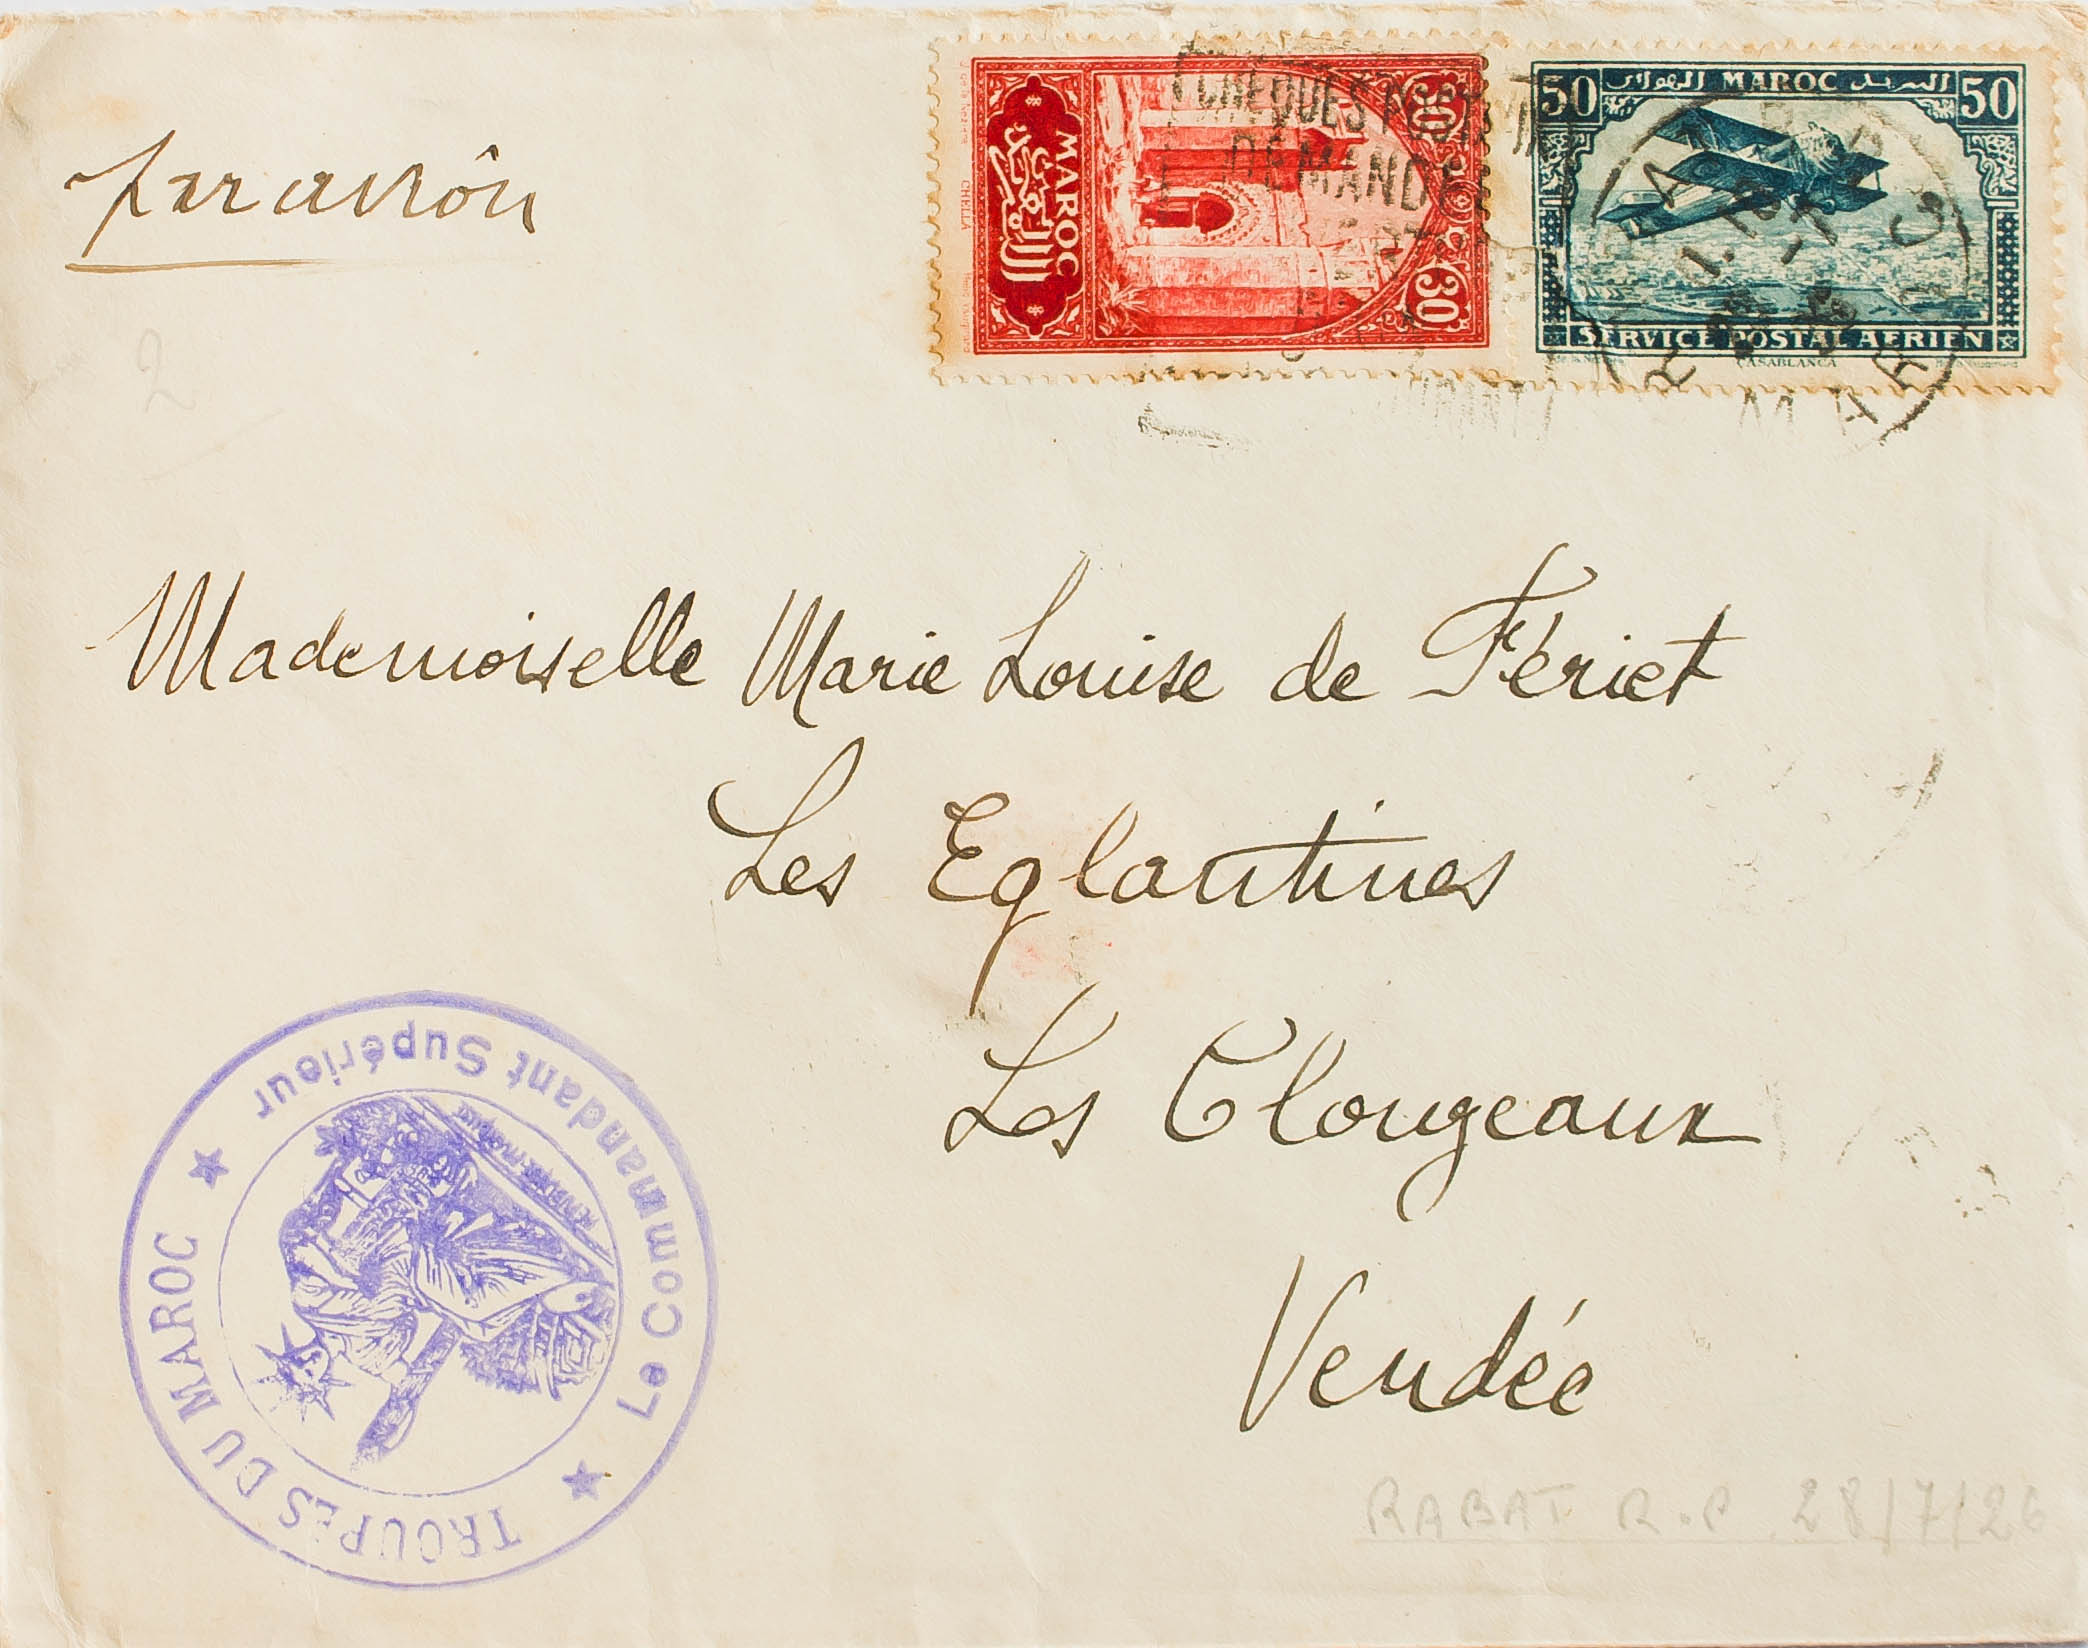 par avion
30 MAROC المغرب 30
CHELLA
CHEQUES POSTAUX
DEMANDEZ
50 البريد الهوائي MAROC 50
SERVICE POSTAL AÉRIEN
CASABLANCA
RABAT R.P.
MAROC
2
Mademoiselle Marie Louise de Fériet
Les Eglantines
Les Clouzeaux
Vendée
TROUPES DU MAROC ★ Le Commandant Supérieur ★
RABAT R.P 28/7/26